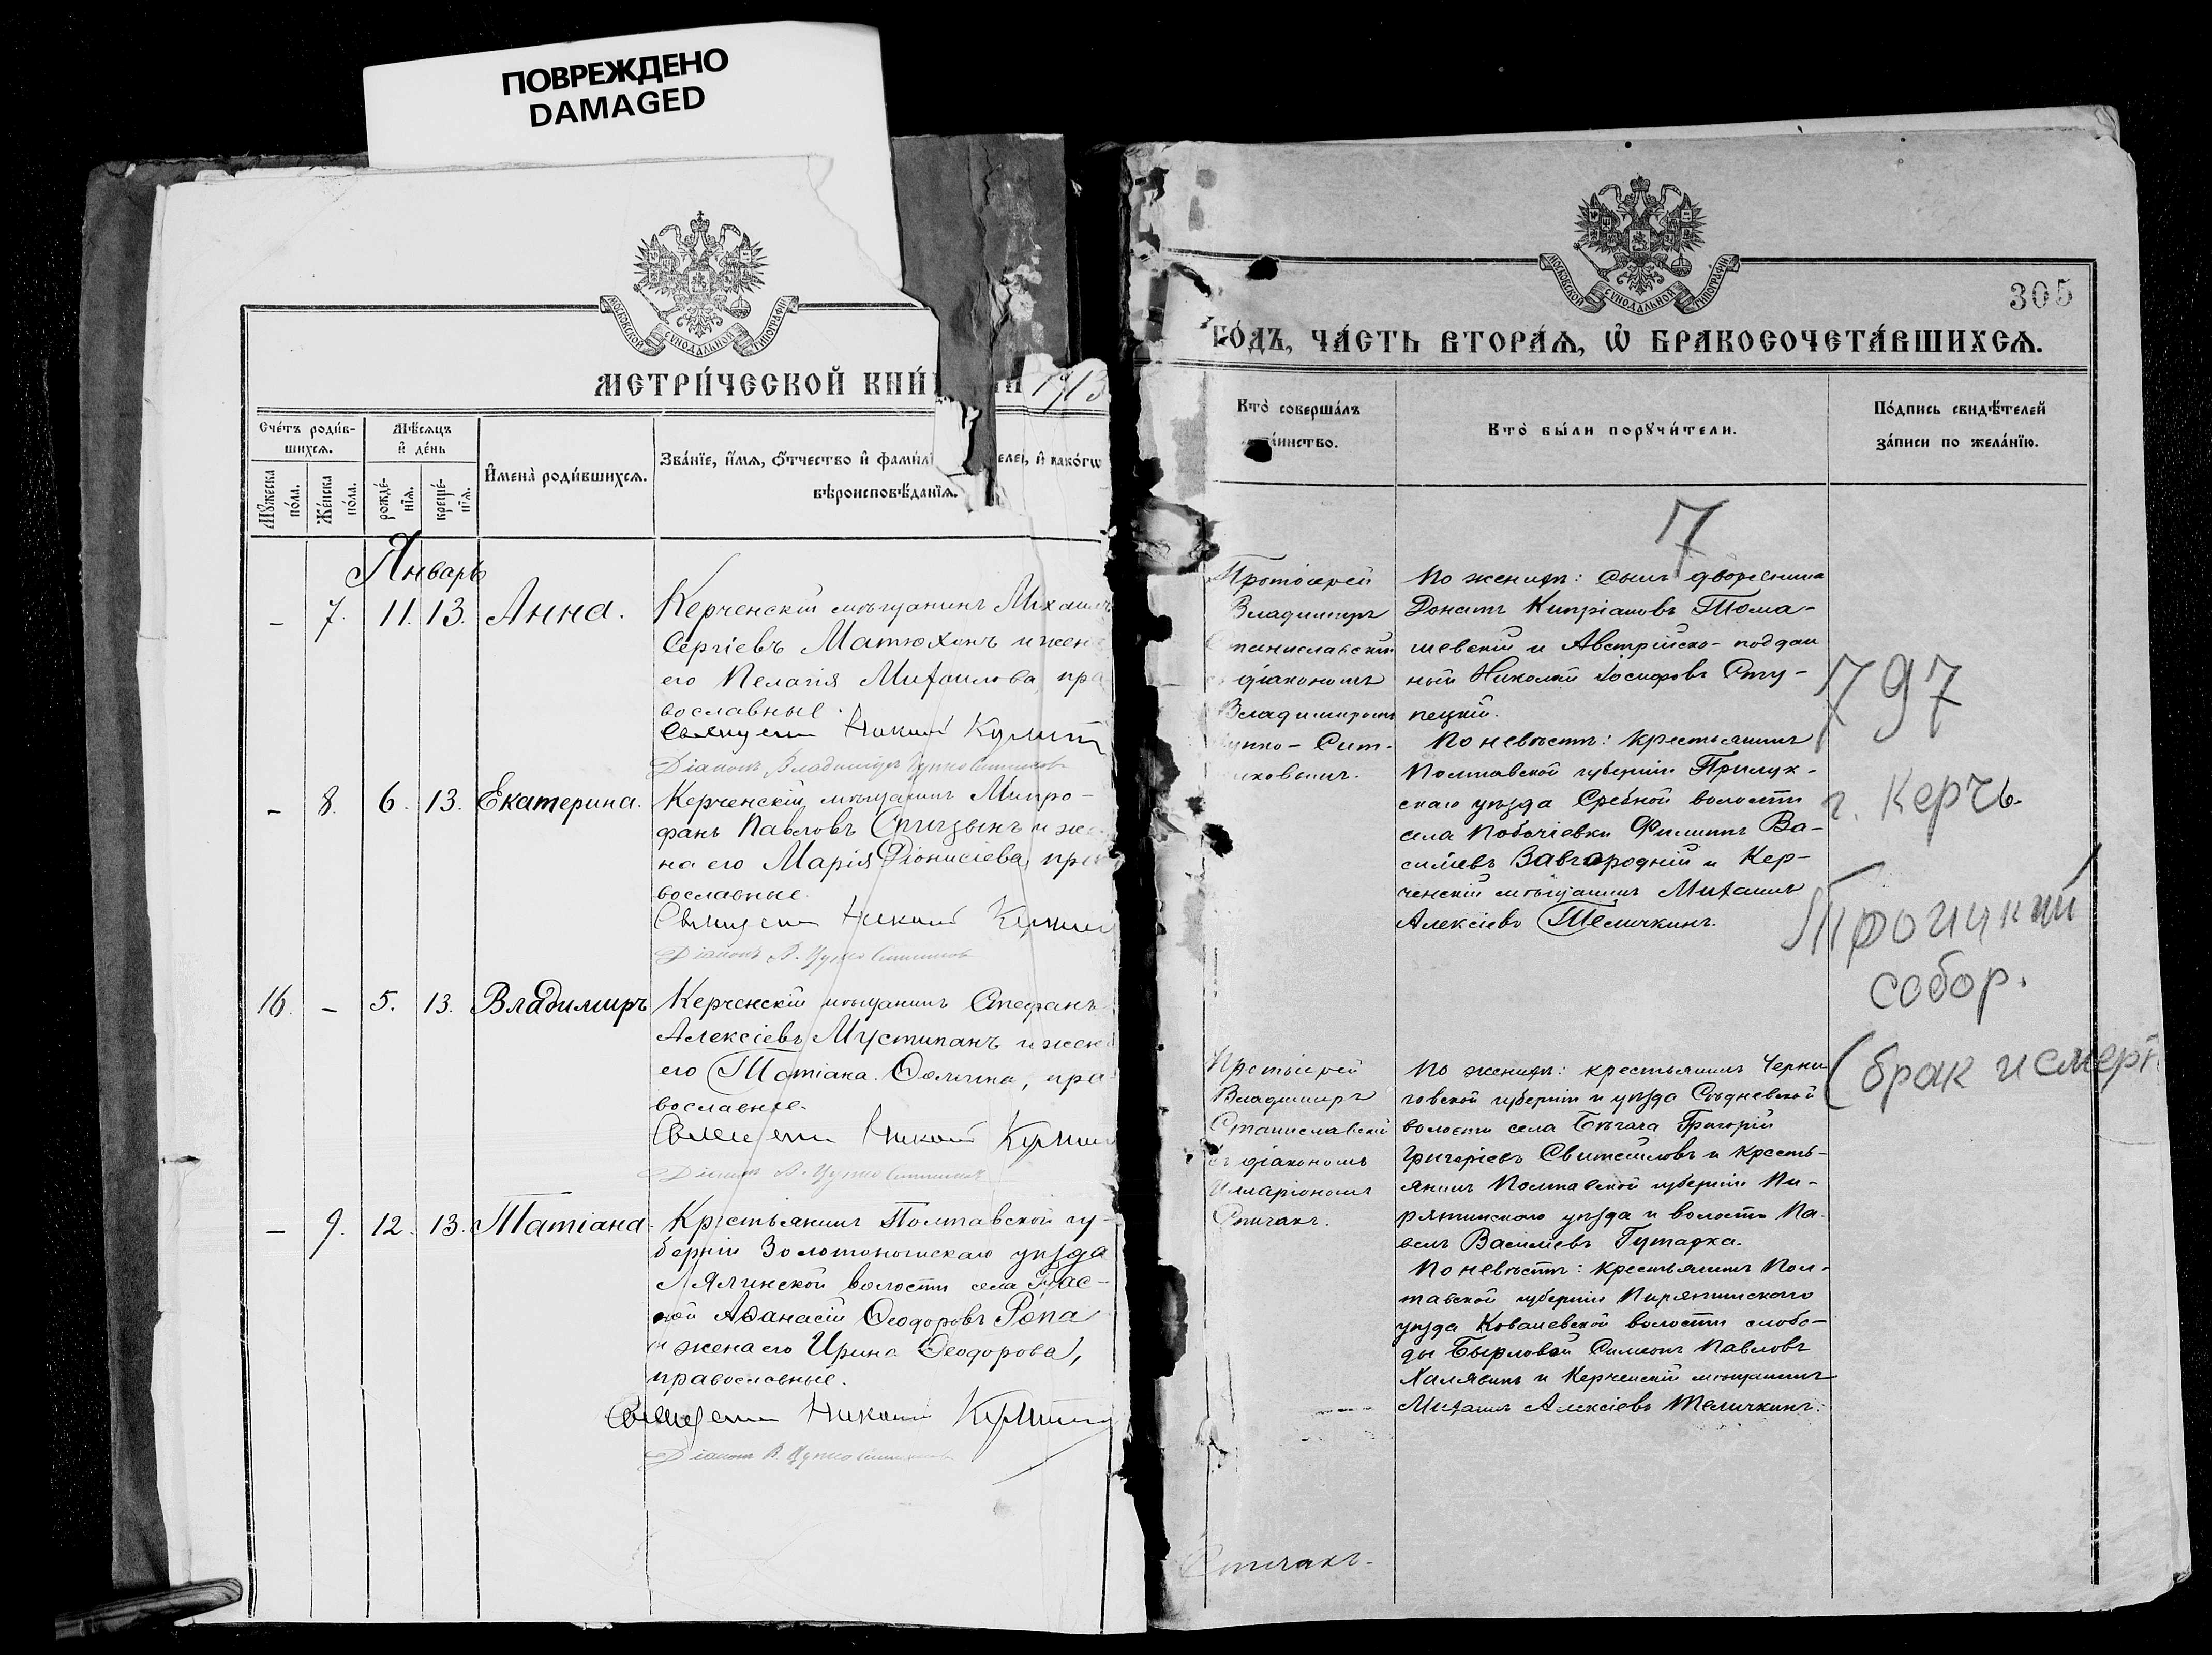 ПОВРЕЖДЕНО
DAMAGED
МОСКОВСКОЙ СУНОДАЛЬНОЙ ТИПОГРАФИИ
МЕТРИ́ЧЕСКОЙ КНИ́ 1913
Сче́тъ роди́в-
шихсѧ.
Мꙋ́жеска по́ла.
Же́нска по́ла.
Мѣ́сѧцъ и де́нь
рожде́-
нїѧ.
креще́-
нїѧ.
И҆мена̀ роди́вшихсѧ.
Зва́нїе, и҆́мѧ, ѻ҆́тчество и҆ фами́лї елей, и҆ како́гѡ
вѣроисповѣ́данїѧ.
Январь
– 7. 11. 13. Анна. Керченскій мѣщанинъ Михаилъ
Сергіевъ Матюхинъ и жена
его Пелагія Михаилова, пра
вославные.
Священ Николай
Діаконъ Владиміръ
– 8. 6. 13. Екатерина. Керченскій мѣщанинъ Митро-
фанъ Павловъ и же
на его Марія Діонисіева, пра
вославные.
Священ Николай
Діаконъ В.
16. – 5. 13. Владимиръ Керченскій мѣщанинъ Стефанъ
Алексіевъ Мустипанъ и жена
его Татіана, пра
вославные.
Священ Николай
Діаконъ В.
– 9. 12. 13. Татіана. Крестьянинъ Полтавской гу-
берніи Золотоношскаго уѣзда
Лялинской волости села
ной Аѳанасій Ѳеодоровъ Рѣпа
и жена его Ирина Ѳеодорова,
православные.
Священ Николай
Діаконъ В.
МОСКОВСКОЙ СУНОДАЛЬНОЙ ТИПОГРАФИИ
305
ГО́ДЪ, ЧА́СТЬ ВТОРА́Ѧ, Ѡ҆ БРАКОСОЧЕТА́ВШИХСѦ.
Кто̀ соверша́лъ
а́инство.
Кто̀ бы́ли порꙋчи́тели.
По́дпись свидѣ́телей
за́писи по жела́нїю.
7
Протоіерей
Владимиръ
Станиславскій
діакономъ
Владимиромъ
По женихѣ: сынъ дворянина
Донатъ Кипріановъ Тома-
шевскій и Австрійско-поддан
ный Николай Іосифовъ Сту-
пецкій.
По невѣстѣ: крестьянинъ
Полтавской губерніи Прилук-
скаго уѣзда Сребной волости
села Побочіевки Филиппъ Ва-
силіевъ Завгородній и Кер-
ченскій мѣщанинъ Михаилъ
Алексіевъ Теличкинъ.
797
г. Керчь
Троицкий
собор.
(брак и смерт.
Протоіерей
Владимиръ
Станиславскій
съ діакономъ
Иларіономъ
Спичакъ.
По женихѣ: крестьянинъ Черни
говской губерніи и уѣзда Сѣдневской
волости села Бѣгача Григорій
Григоріевъ Свитайловъ и кресть-
янинъ Полтавской губерніи Пи-
рятинскаго уѣзда и волости Па-
велъ Василіевъ Гутарка.
По невѣстѣ: крестьянинъ Пол-
тавской губерніи Пирятинскаго
уѣзда Ковалевской волости слобо-
ды Бырловой Симеонъ Павловъ
Халявинъ и Керченскій мѣщанинъ
Михаилъ Алексіевъ Теличкинъ.
Спичакъ.